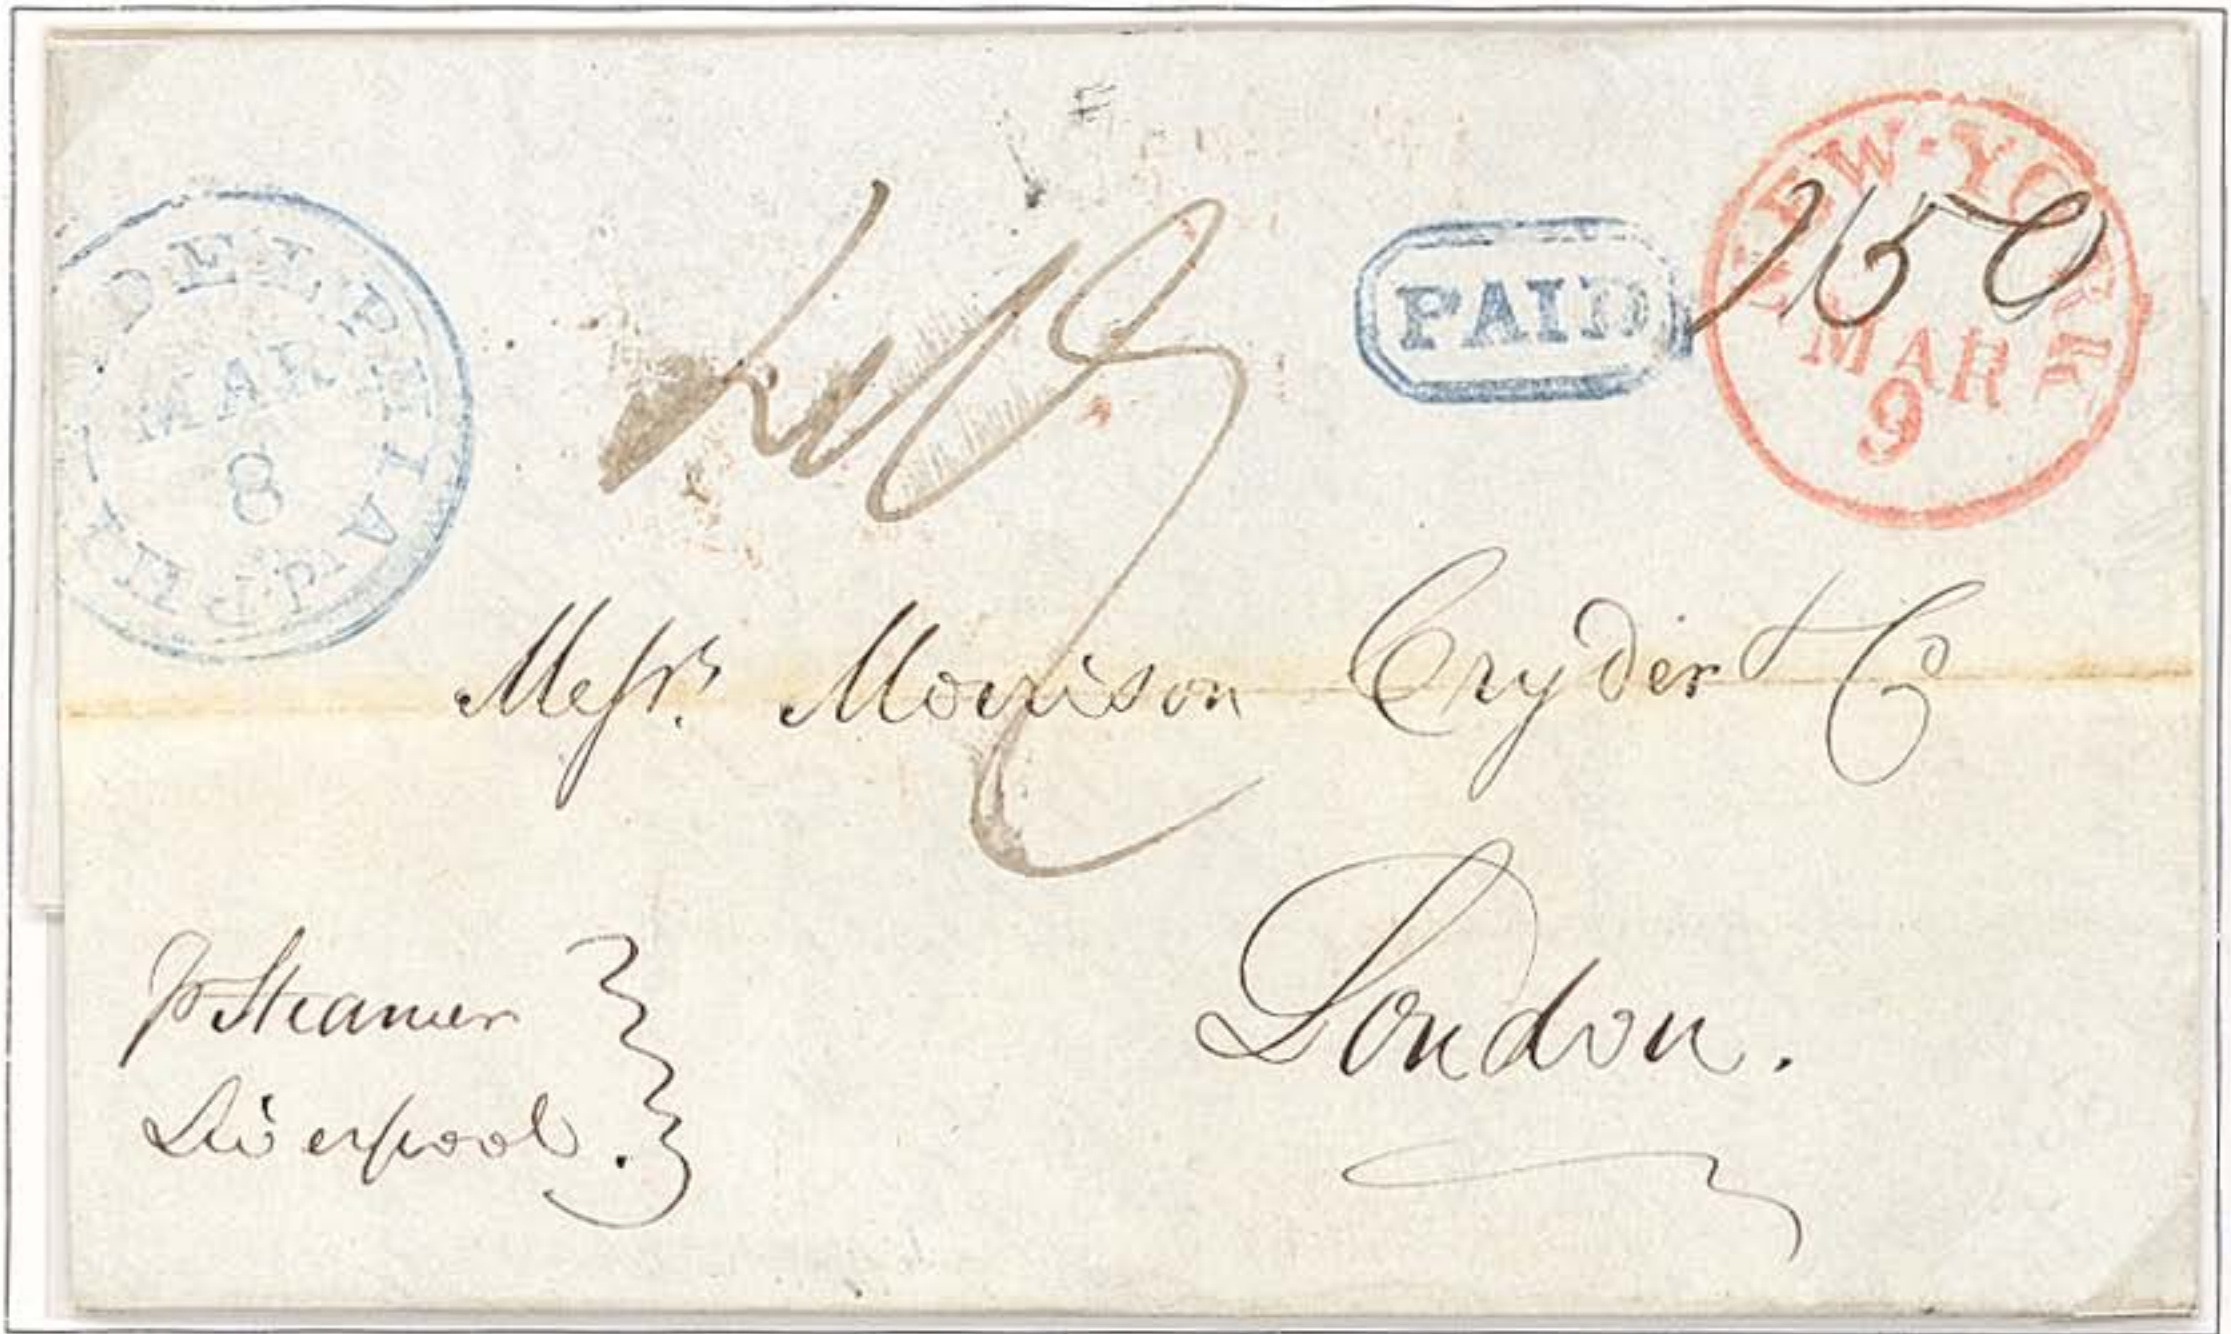 PHILADELPHIA Pa.
MAR
8
PAID
NEW-YORK
MAR
9
150
Messrs. Morrison Cryder & Co
London.
p Steamer
Liverpool.